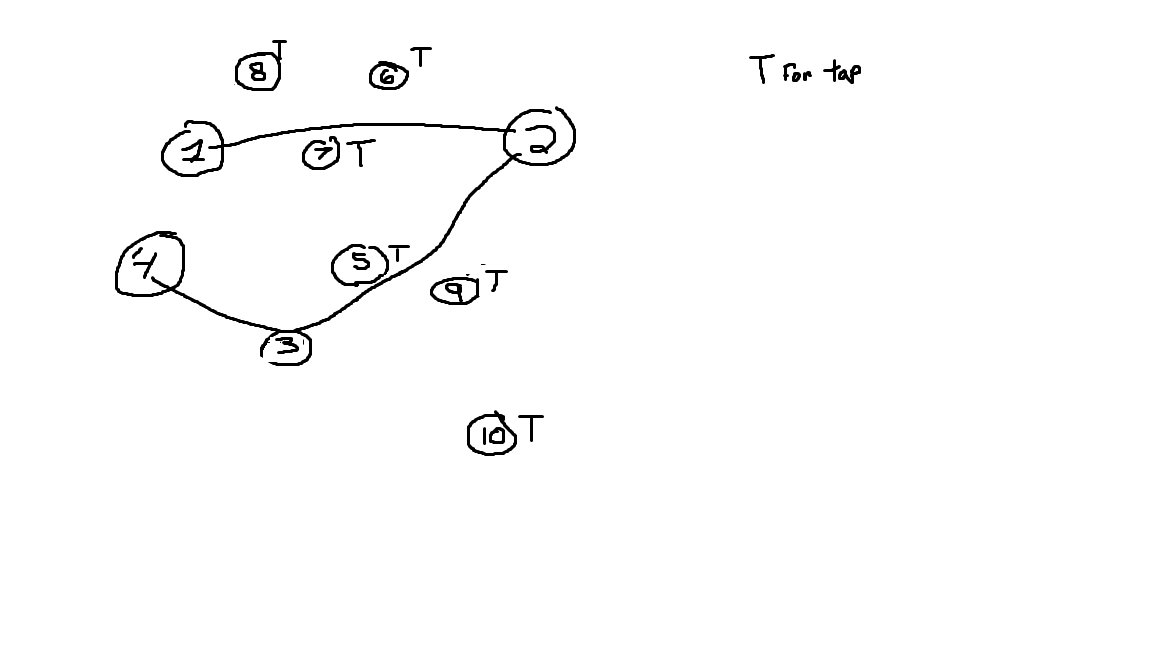 8 T
6 T
T for tap
1
2
7 T
4
5 T
9 T
3
10 T